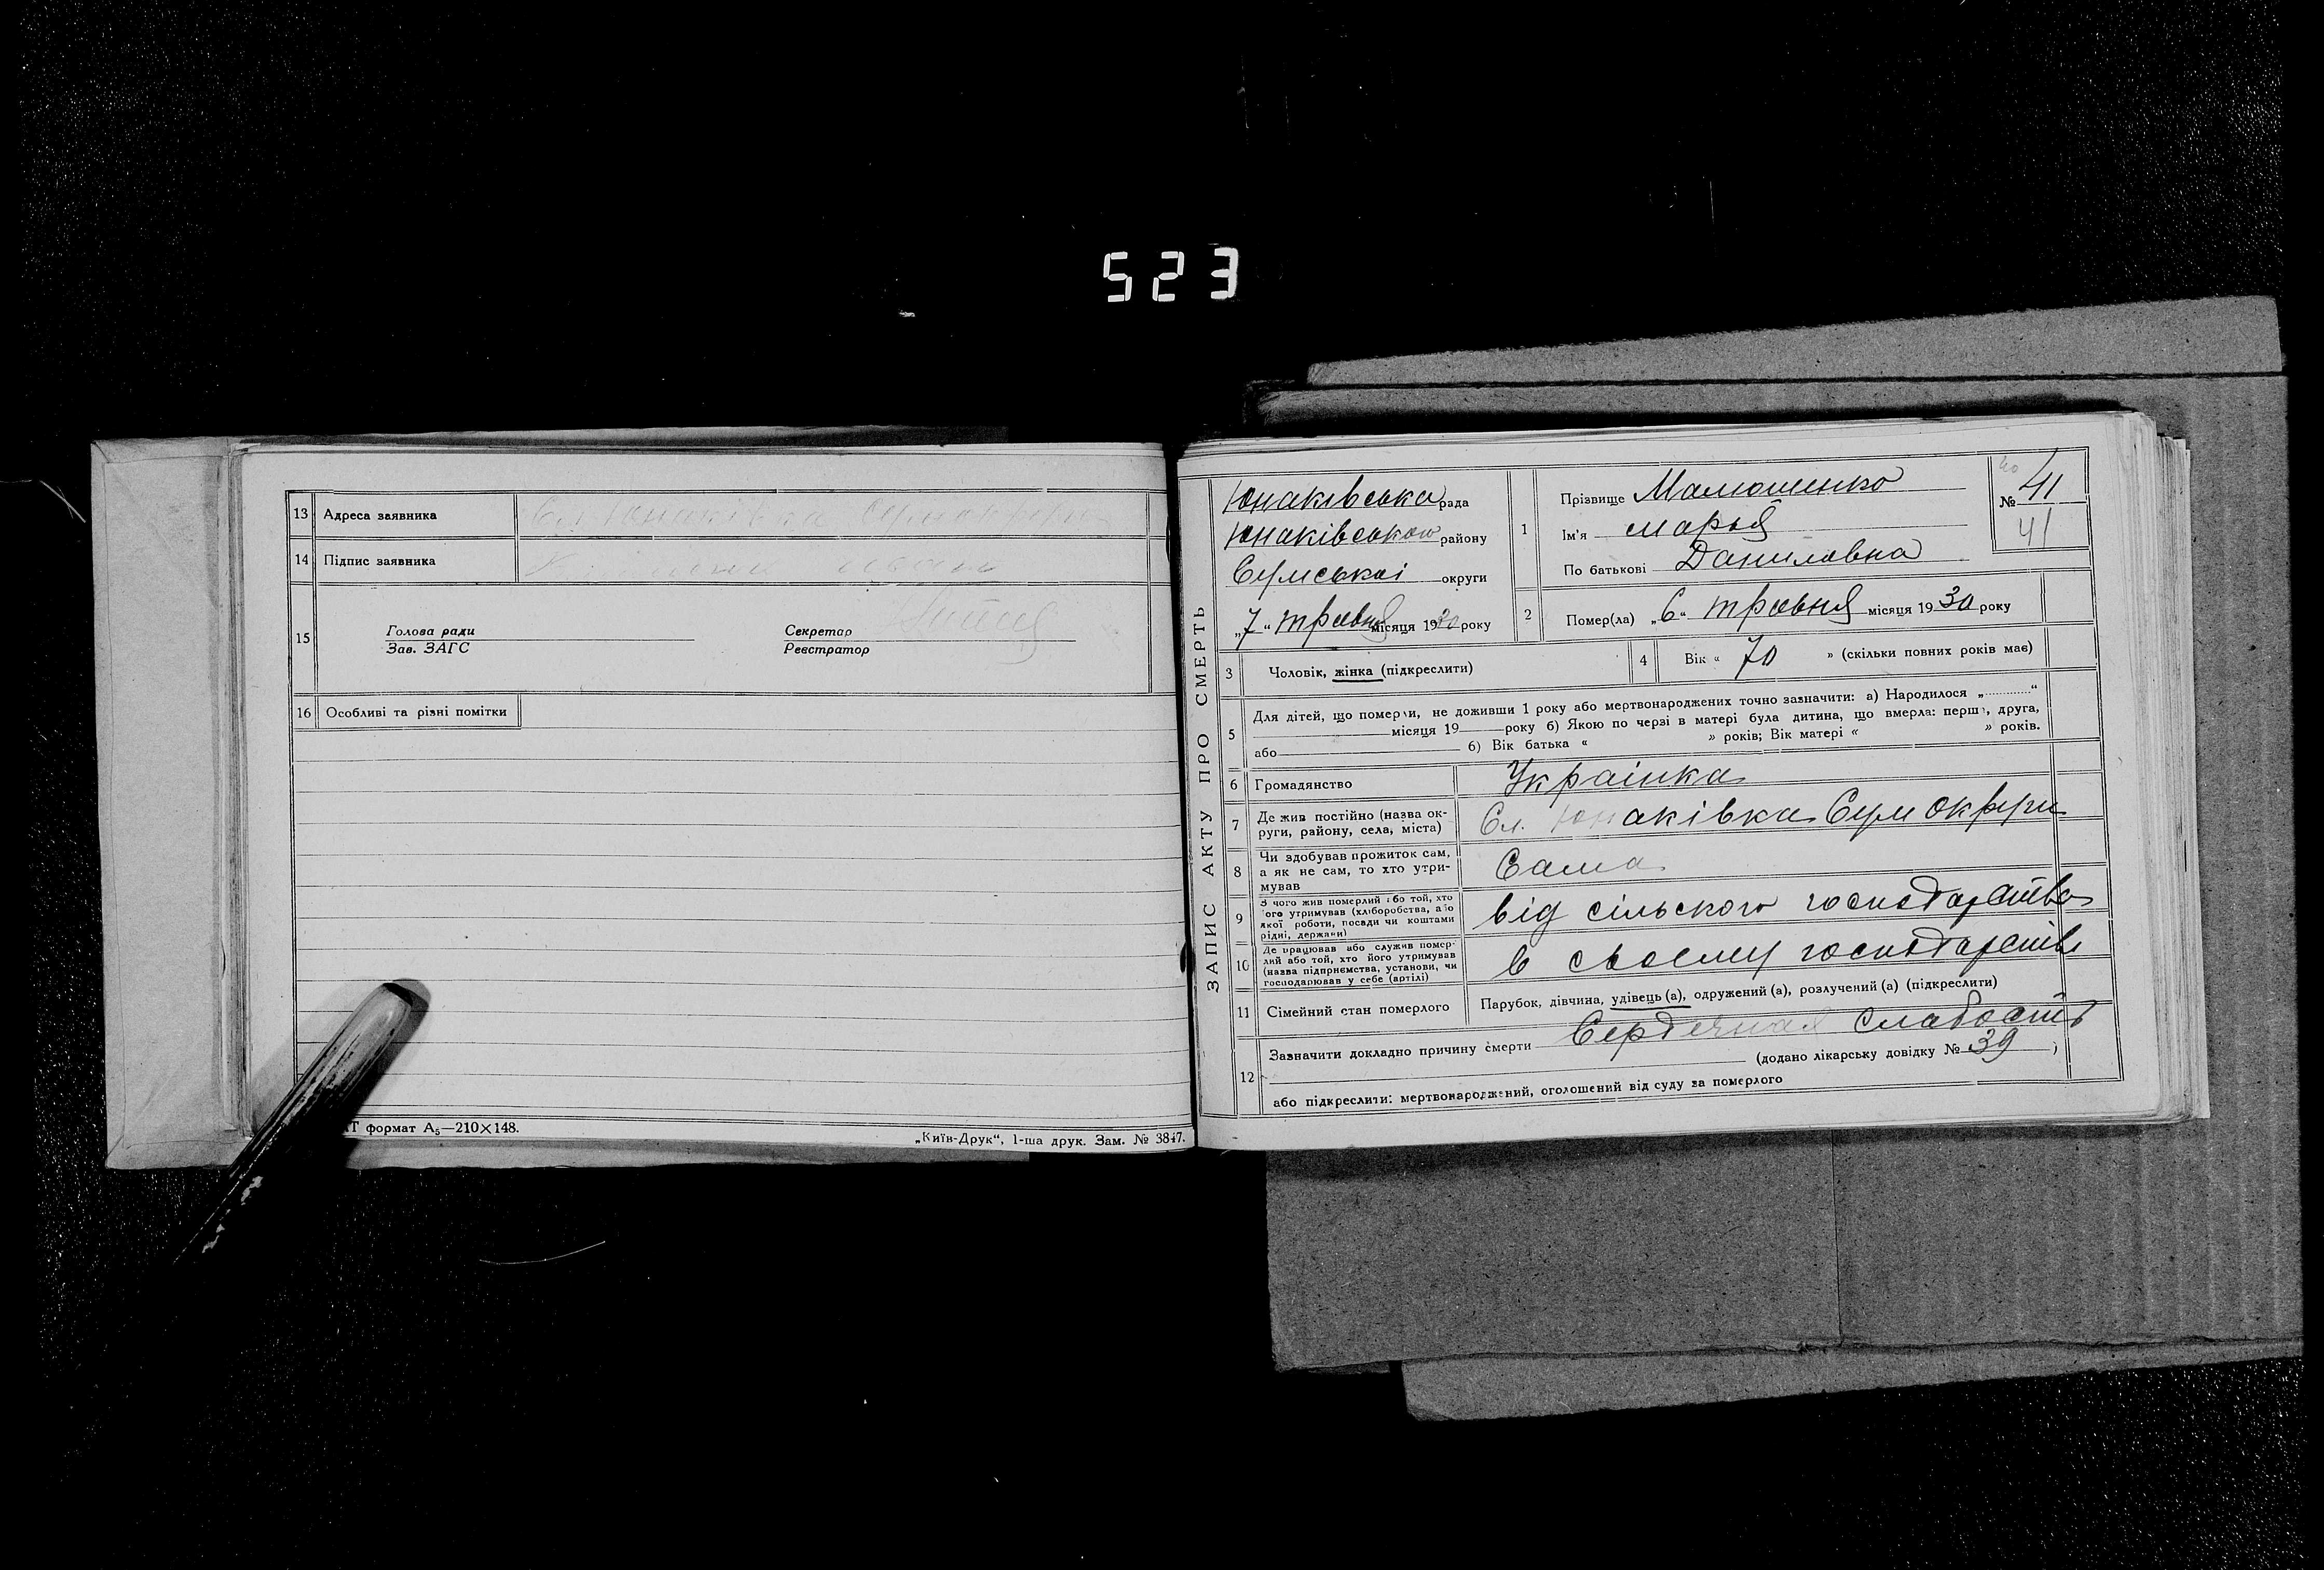 523
13 Адреса заявника Сл Юнаківка
14 Підпис заявника
15
Голова ради
Зав. ЗАГС
Секретар
Реєстратор
16 Особливі та різні помітки
формат А5—210×148.
„Київ-Друк“, 1-ша друк. Зам. № 3847.
ЗАПИС АКТУ ПРО СМЕРТЬ
Юнаківська рада
Юнаківського району
Сумськоі округи
„7“ травня місяця 1930 року
1
Прізвище Малюшенко
Ім'я марья
По батькові Даниловна
40
№ 41
41
2 Помер(ла) „6“ травня місяця 1930 року
3 Чоловік, жінка (підкреслити)
4 Вік « 70 » (скільки повних років має)
5
Для дітей, що померли, не доживши 1 року або мертвонароджених точно зазначити: а) Народилося „............“
місяця 19 року б) Якою по черзі в матері була дитина, що вмерла: перша, друга,
або б) Вік батька « » років; Вік матері « » років.
6 Громадянство Украінка
7 Де жив постійно (назва ок-
руги, району, села, міста) Сл. Юнаківка Сум округи
8 Чи здобував прожиток сам,
а як не сам, то хто утри-
мував Сама
9 З чого жив померлий або той, хто
його утримував (хліборобства, або
якої роботи, посади чи коштами
рідні, держави) від сільского господарства
10 Де працював або служив помер-
лий або той, хто його утримував
(назва підприємства, установи, чи
господарював у себе (артілі) в своему господарстві
11 Сімейний стан померлого Парубок, дівчина, удівець (а), одружений (а), розлучений (а) (підкреслити)
12
Зазначити докладно причину смерти Сердечная слабость
(додано лікарську довідку № 39 )
або підкреслити: мертвонароджений, оголошений від суду за померлого